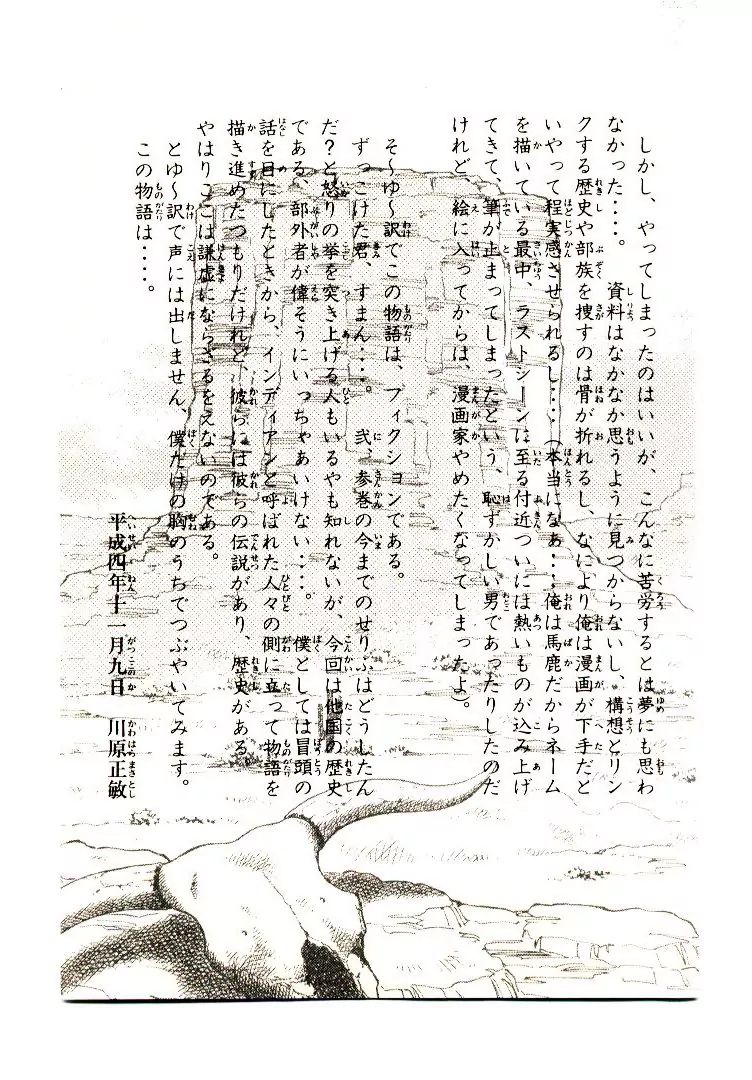 しかし、やってしまったのはいいが、こんなに苦労するとは夢にも思わ
なかった‥‥。　資料はなかなか思うように見つからないし、構想とリン
クする歴史や部族を捜すのは骨が折れるし、なにより俺は漫画が下手だと
いやって程実感させられるし‥‥（本当になぁ‥‥俺は馬鹿だからネーム
を描いている最中、ラストシーンは至る付近ついには熱いものが込み上げ
てきて、筆が止まってしまったという、恥ずかしい男であったりしたのだ
けれど、絵に入ってからは、漫画家やめたくなってしまったよ）。
そ〜ゆ〜訳でこの物語は、フィクションである。
ずっこけた君、すまん‥‥。　弐、参巻の今までのせりふはどうしたん
だ？と怒りの拳を突き上げる人もいるやも知れないが、今回は他国の歴史
である、部外者が偉そうにいっちゃあいけない‥‥。　僕としては冒頭の
話を目にしたときから、インディアンと呼ばれた人々の側に立って物語を
描き進めたつもりだけれど、彼らには彼らの伝説があり、歴史がある。
やはりここは謙虚にならざるをえないのである。
とゆ〜訳で声には出しません、僕だけの胸のうちでつぶやいてみます。
この物語は‥‥。
平成四年十一月九日　川原正敏